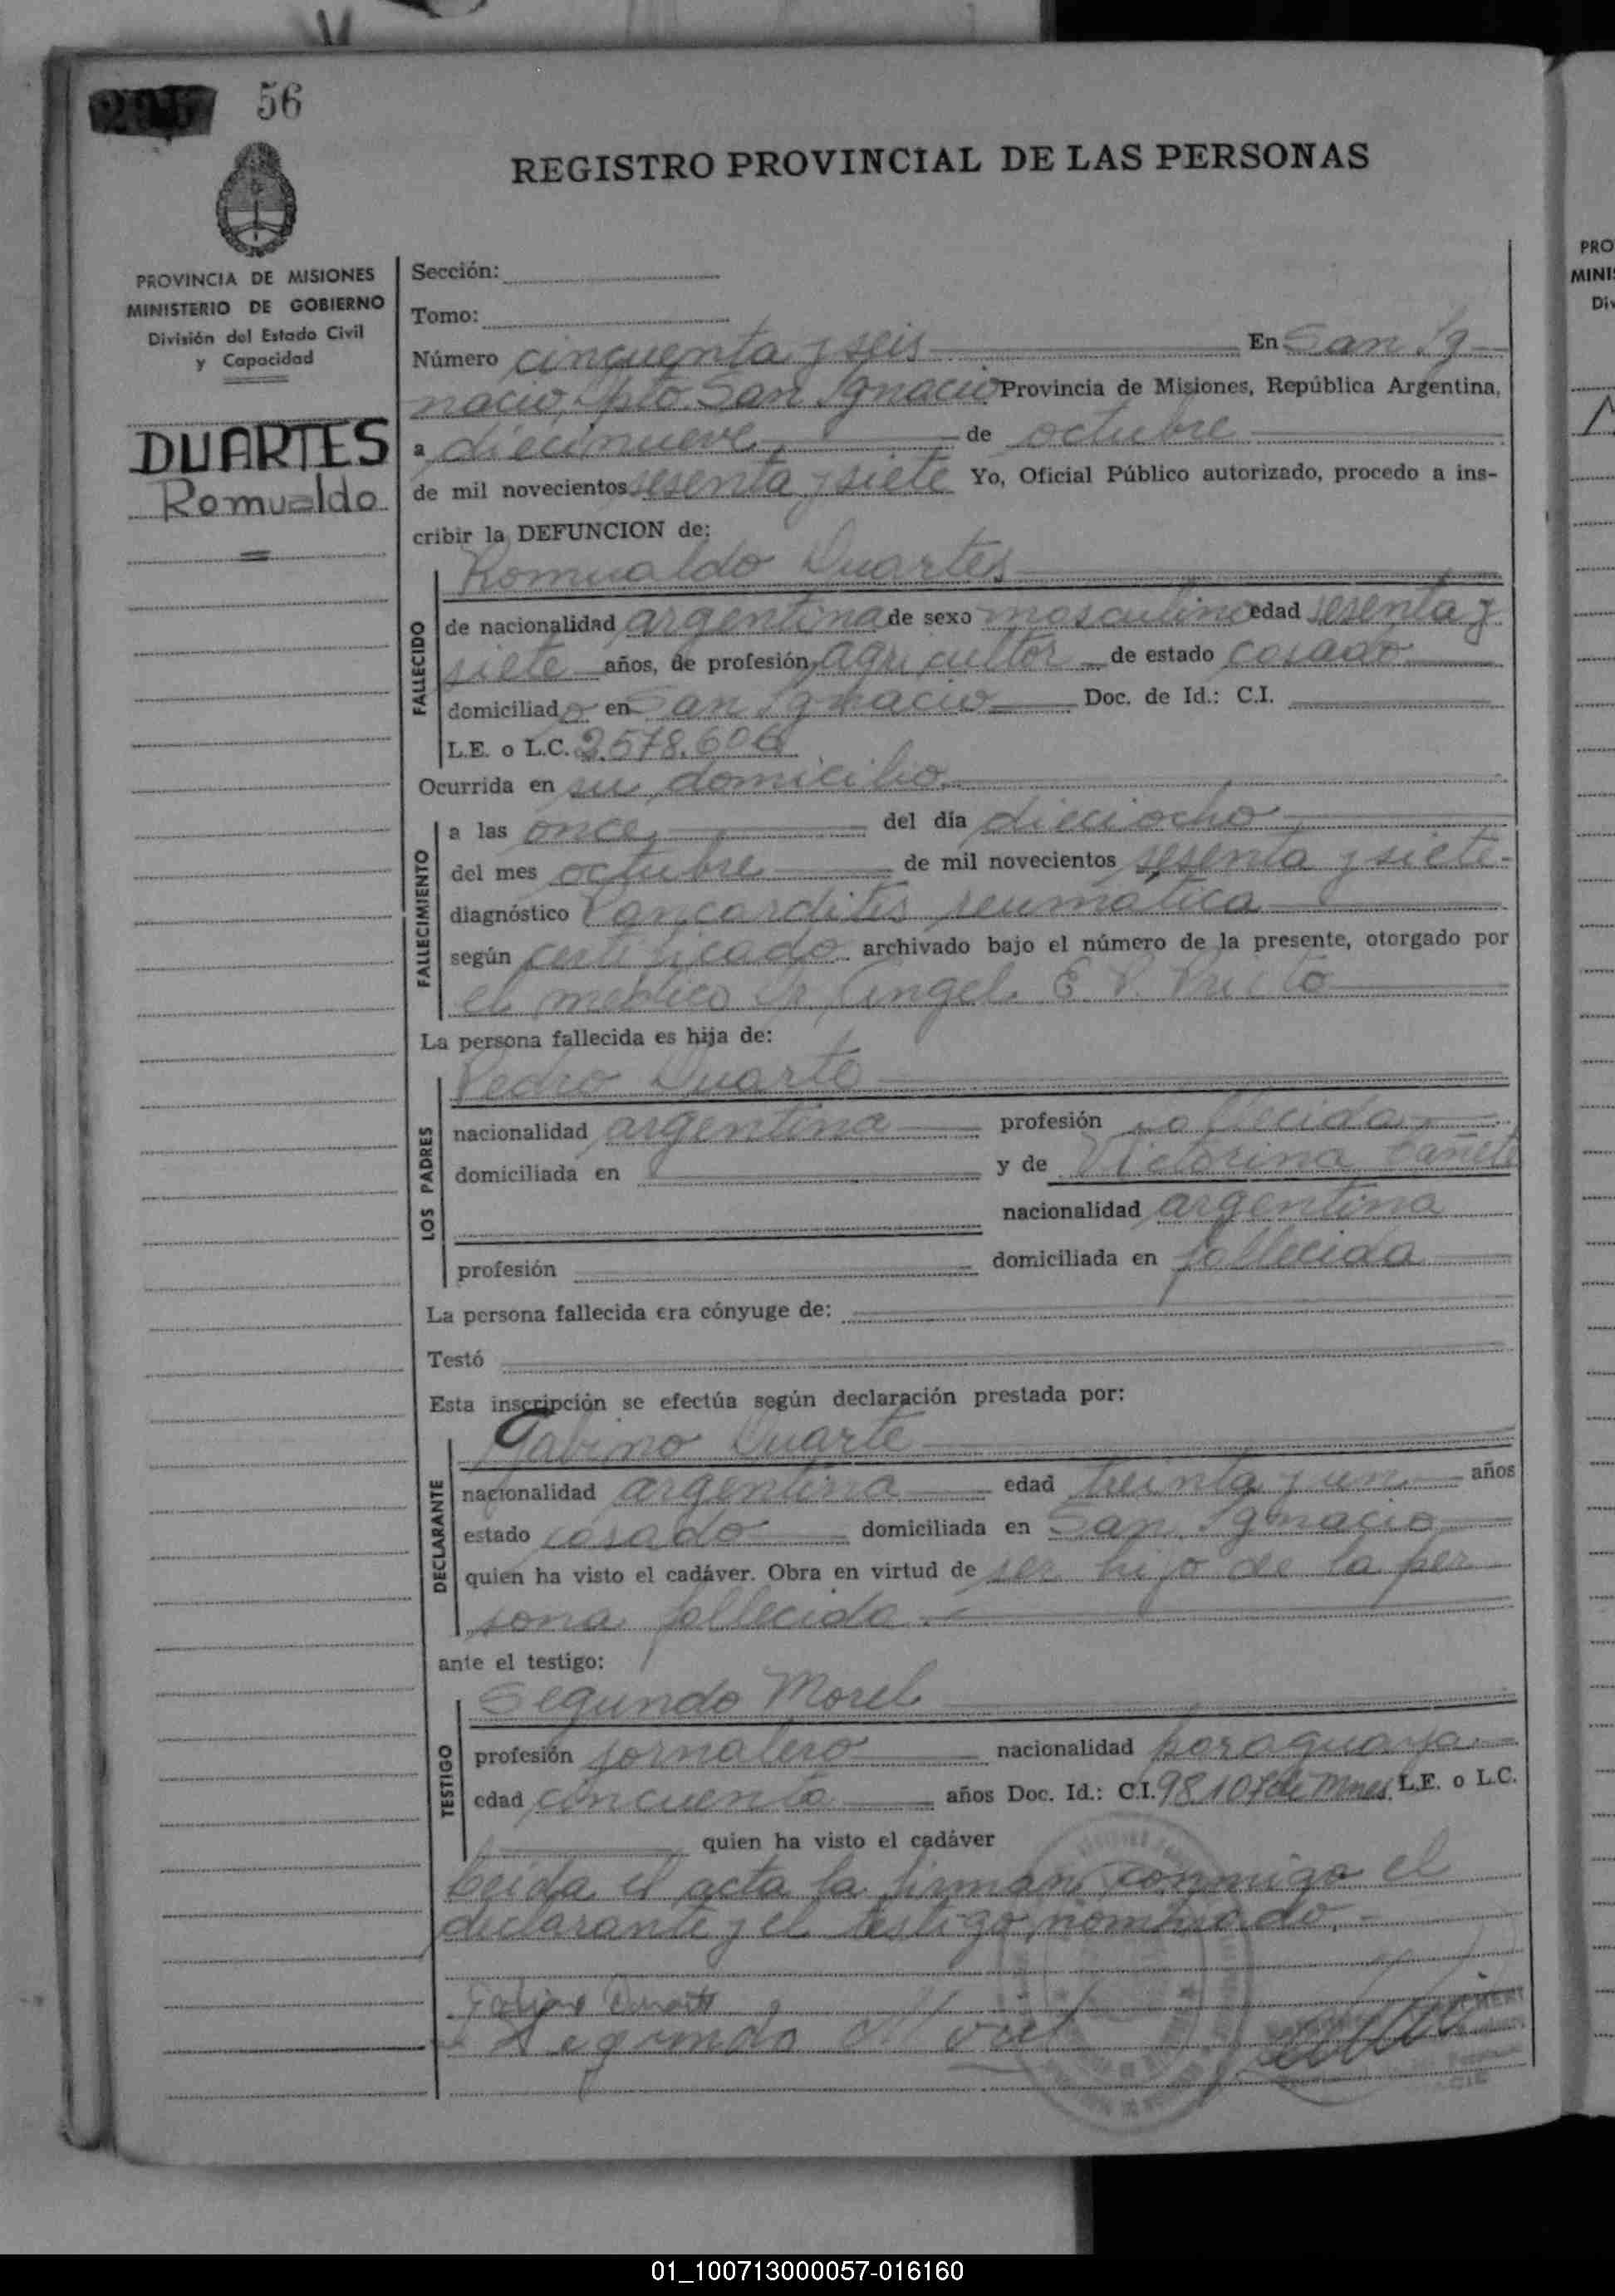 56
REGISTRO PROVINCIAL DE LAS PERSONAS
PROVINCIA DE MISIONES
MINISTERIO DE GOBIERNO
División del Estado Civil
y Capacidad
DUARTES
Romualdo
Sección:
Tomo:
Número cinquenta y seis En San Ig-
nacio, Dpto. San Ignacio Provincia de Misiones, República Argentina,
a diecinueve de octubre
de mil novecientos sesenta y siete Yo, Oficial Público autorizado, procedo a ins-
cribir la DEFUNCION de:
Romualdo Duartes
FALLECIDO
de nacionalidad argentina de sexo masculino edad sesenta y
siete años, de profesión agricultor de estado casado
domiciliado en San Ignacio Doc. de Id.: C.I.
L.E. o L.C. 2.578.606
Ocurrida en su domicilio
FALLECIMIENTO
a las once del día dieciocho
del mes octubre de mil novecientos sesenta y siete-
diagnóstico Pancarditis reumática
según certificado archivado bajo el número de la presente, otorgado por
el médico Dr. Angel E. P.
La persona fallecida es hija de:
Pedro Duarte
LOS PADRES
nacionalidad argentina profesión fallecida
domiciliada en y de Victorina Cañete
nacionalidad argentina
profesión domiciliada en fallecida
La persona fallecida era cónyuge de:
Testó
Esta inscripción se efectúa según declaración prestada por:
Gabino Duarte
DECLARANTE
nacionalidad argentina edad treinta y un años
estado casado domiciliada en San Ignacio
quien ha visto el cadáver. Obra en virtud de ser hijo de la per
sona fallecida.-
ante el testigo:
Segundo Morel
TESTIGO
profesión jornalero nacionalidad paraguaya
edad cincuenta años Doc. Id.: C.I. 98.107 de Mnes. L.E. o L.C.
quien ha visto el cadáver
Leida el acta la firman conmigo el
declarante y el testigo nombrado.-
Duarte
Segundo Morel
PRO
MINI
Div
01_100713000057-016160